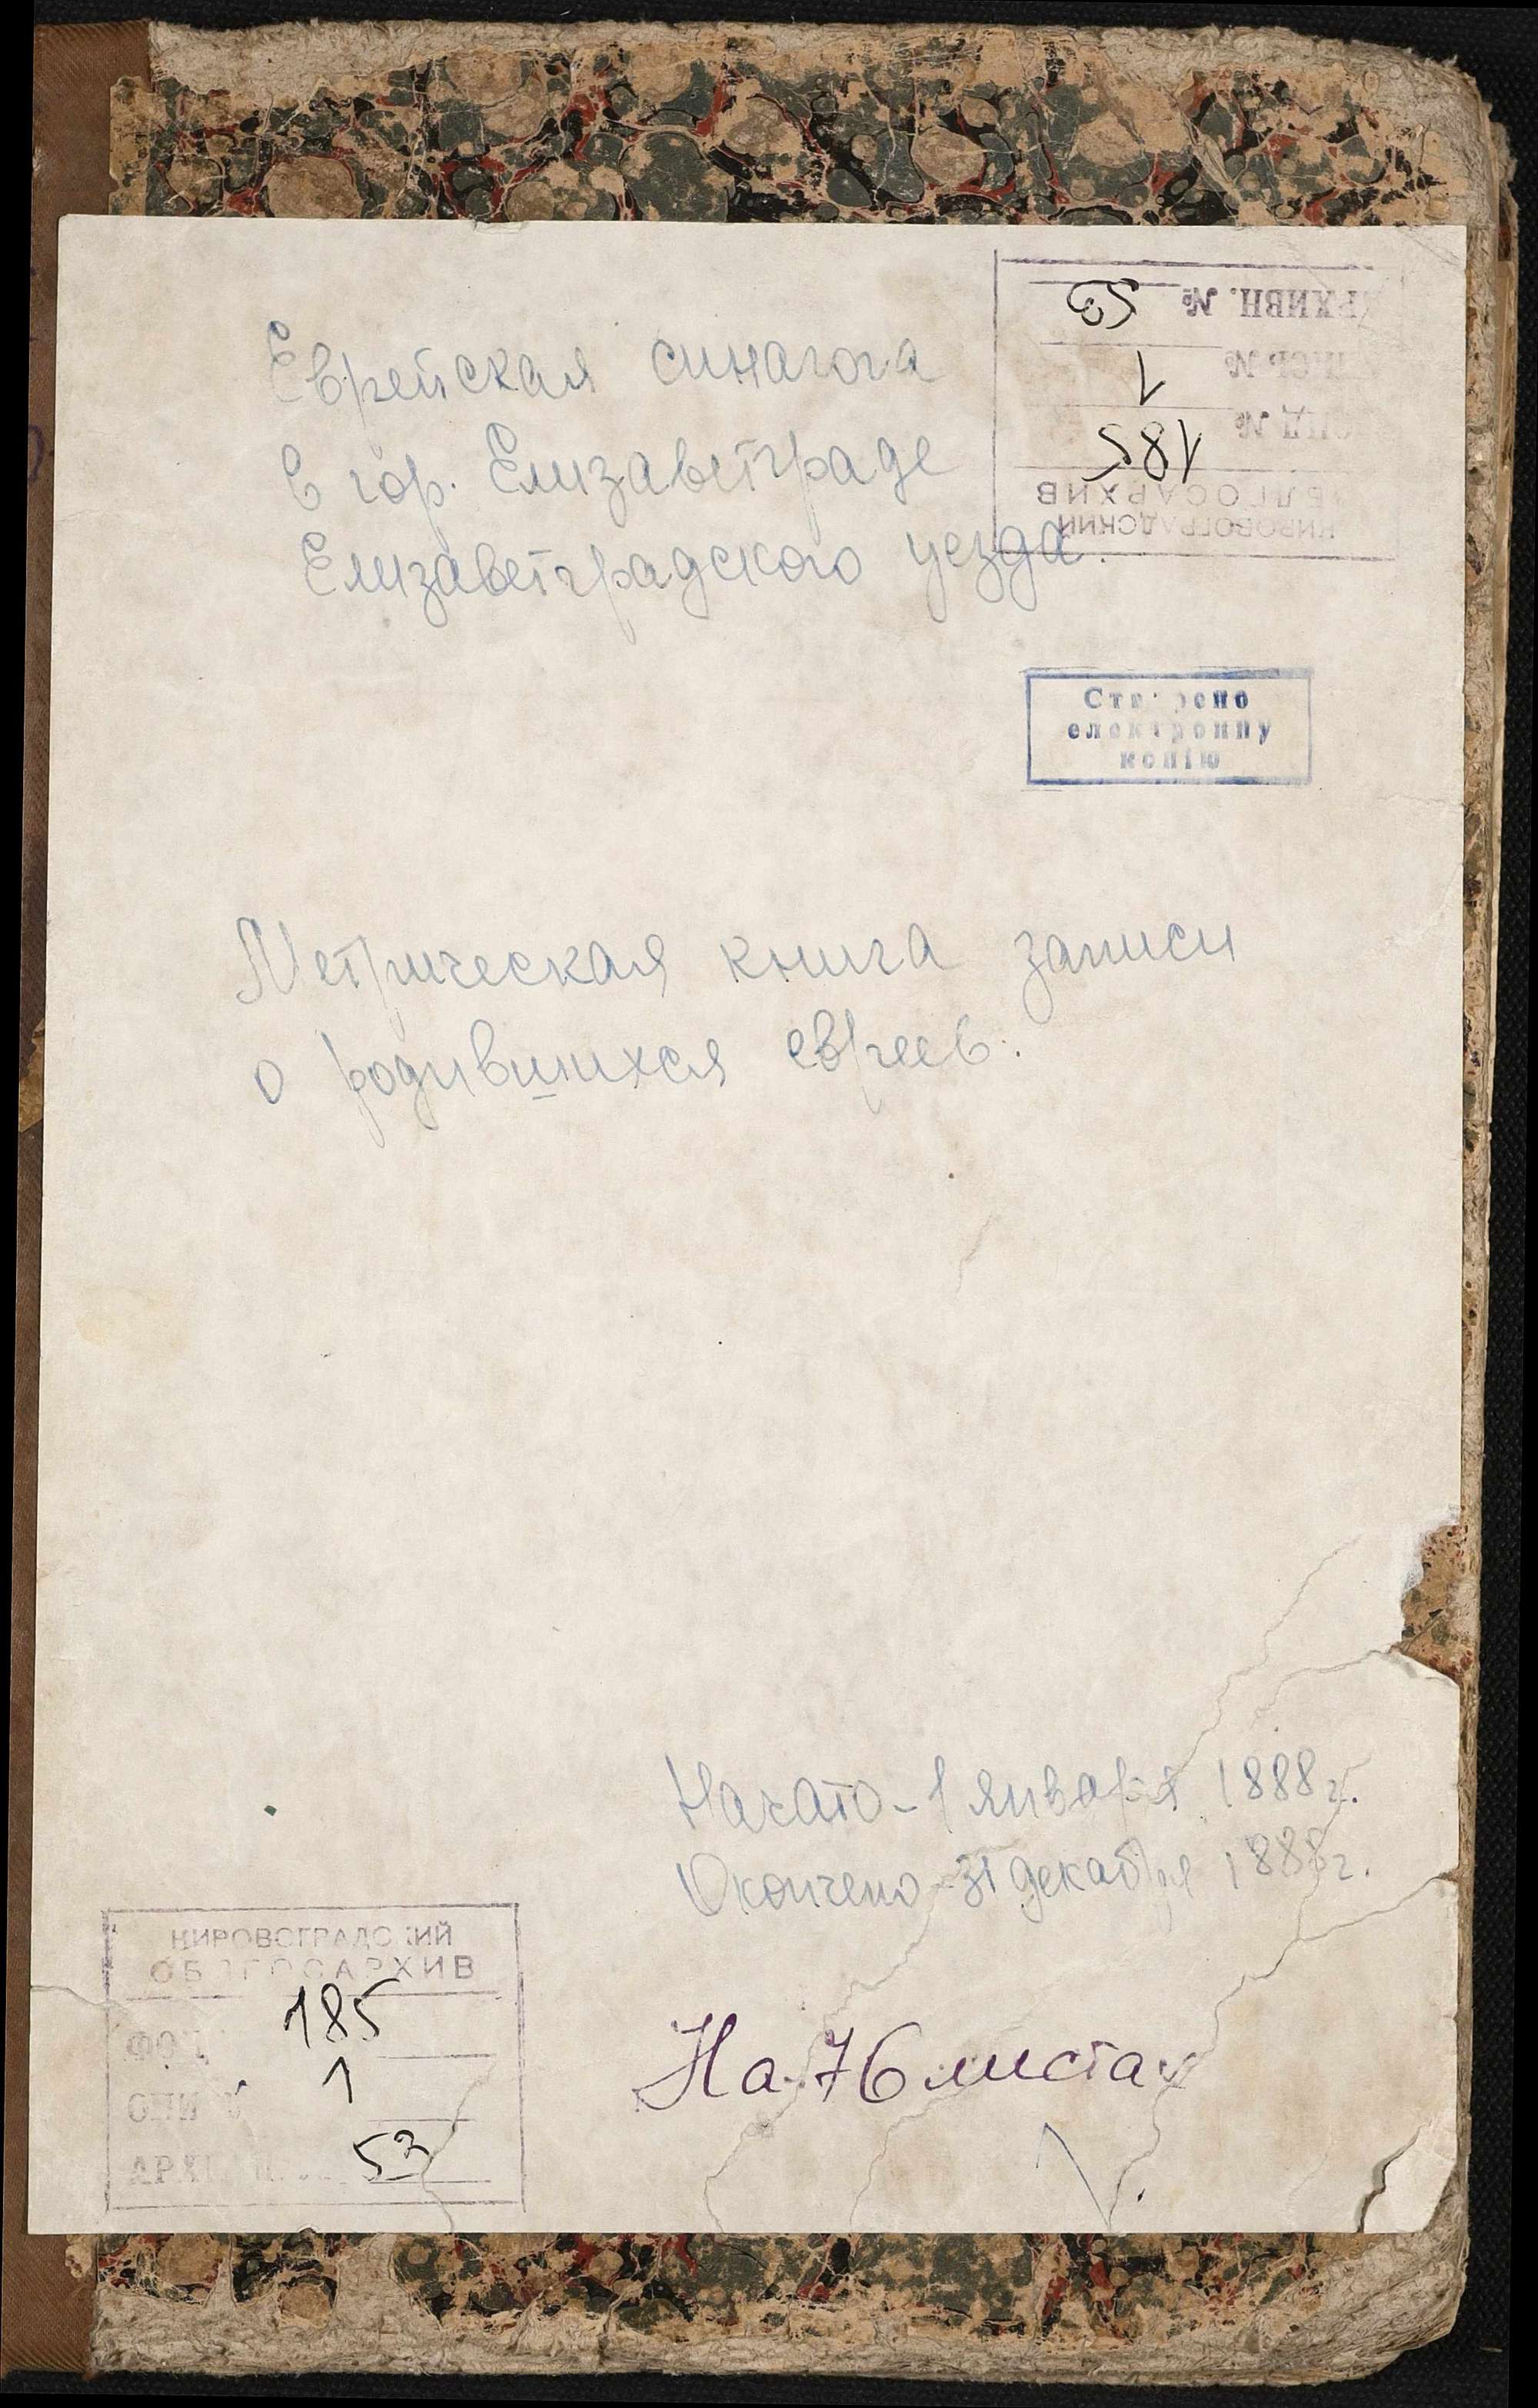 Еврейская синагога
в гор. Елизаветграде
Елизаветградского уезда.
КИРОВОГРАДСКИЙ
ОБЛГОСАРХИВ
ФОНД № 185
ОПИСЬ № 1
АРХИВН. № 53
Створено
електронну
копію
Метрическая книга записи
о родившихся евреев.
Начато - 1 января 1888 г.
Окончено - 31 декабря 1888 г.
КИРОВОГРАДСКИЙ
ОБЛГОСАРХИВ
ФОНД 185
ОПИСЬ 1
АРХИВН. № 53
На 76 листах